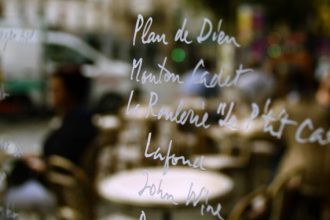 Plan de Dieu
Mouton Cadet
La Roulerie "Le P'tit Cas
Lafond
John Wine